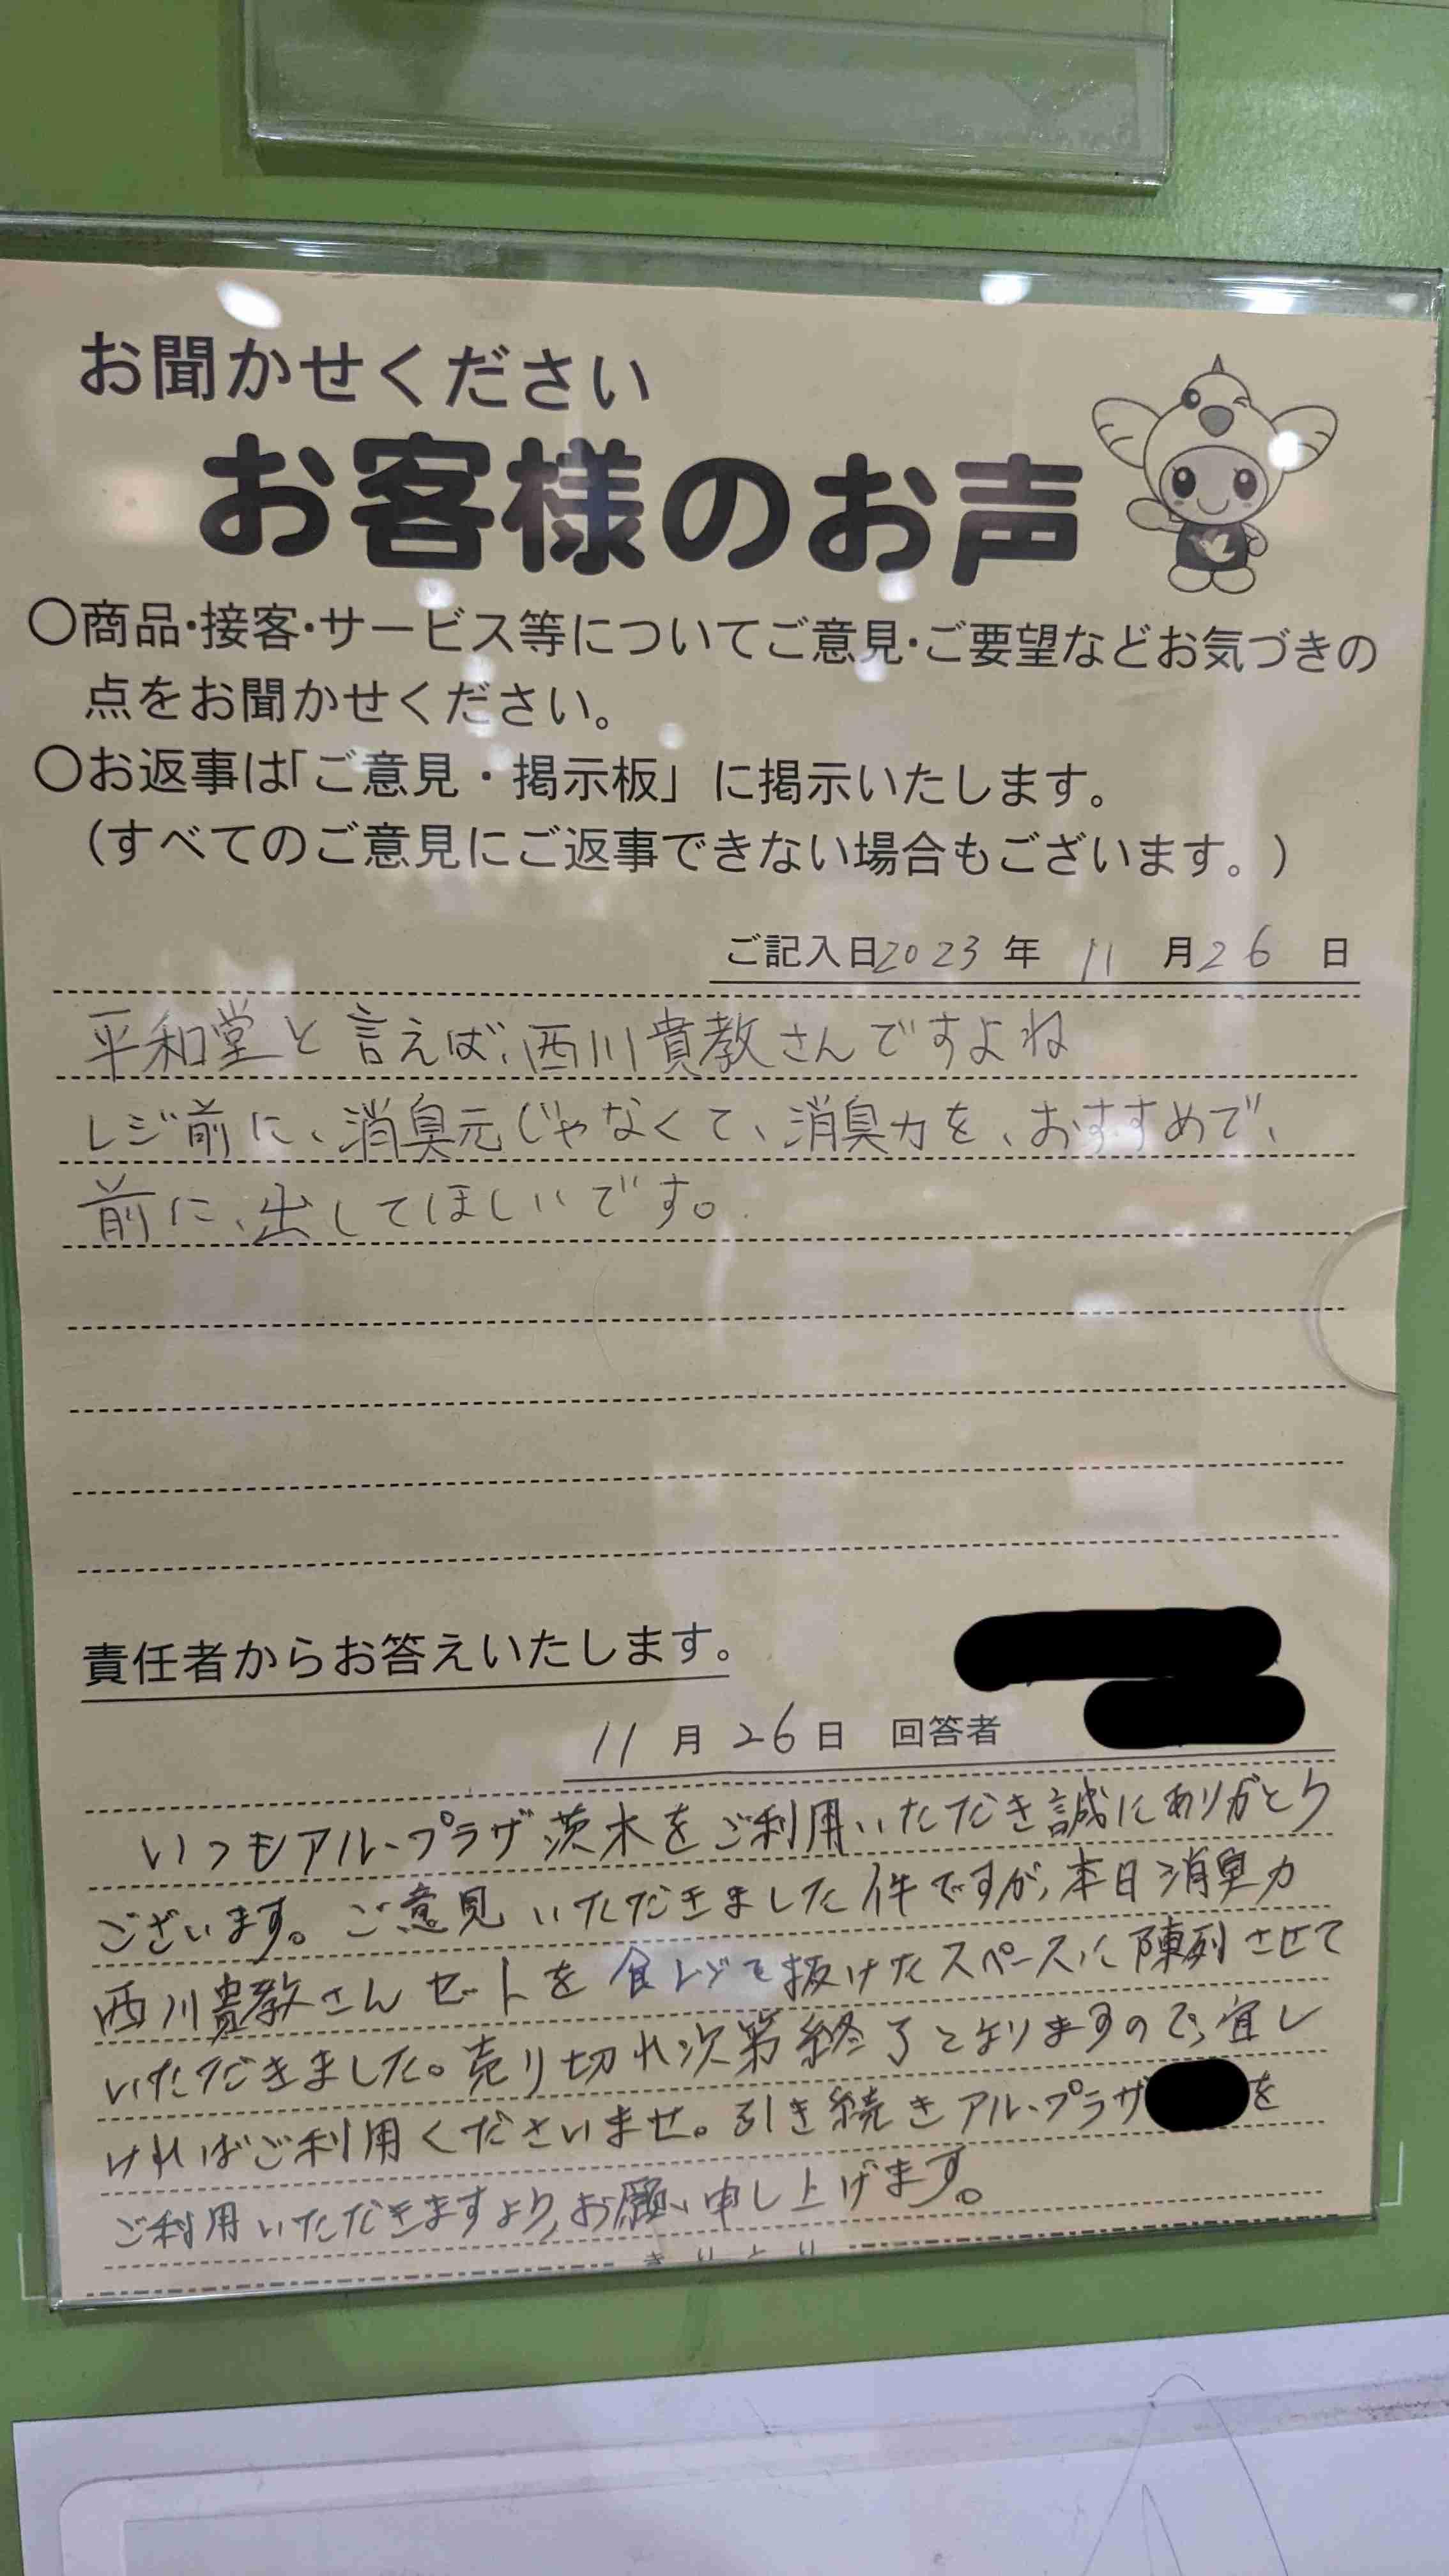 お聞かせください
お客様のお声
○商品・接客・サービス等についてご意見・ご要望などお気づきの
点をお聞かせください。
○お返事は「ご意見・掲示板」に掲示いたします。
（すべてのご意見にご返事できない場合もございます。）
ご記入日2023年 11 月26 日
平和堂と言えば、西川貴教さんですよね
レジ前に、消臭元じゃなくて、消臭力を、おすすめで、
前に、出してほしいです。
責任者からお答えいたします。
11 月 26 日 回答者
いつもアル・プラザ茨木をご利用いただき誠にありがとう
ございます。ご意見いただきました件ですが、本日消臭力
西川貴教さんセットを食レジで抜けたスペースに陳列させて
いただきました。売り切れ次第終了となりますので、宜し
ければご利用くださいませ。引き続きアル・プラザ を
ご利用いただきますよう、お願い申し上げます。
きりとり